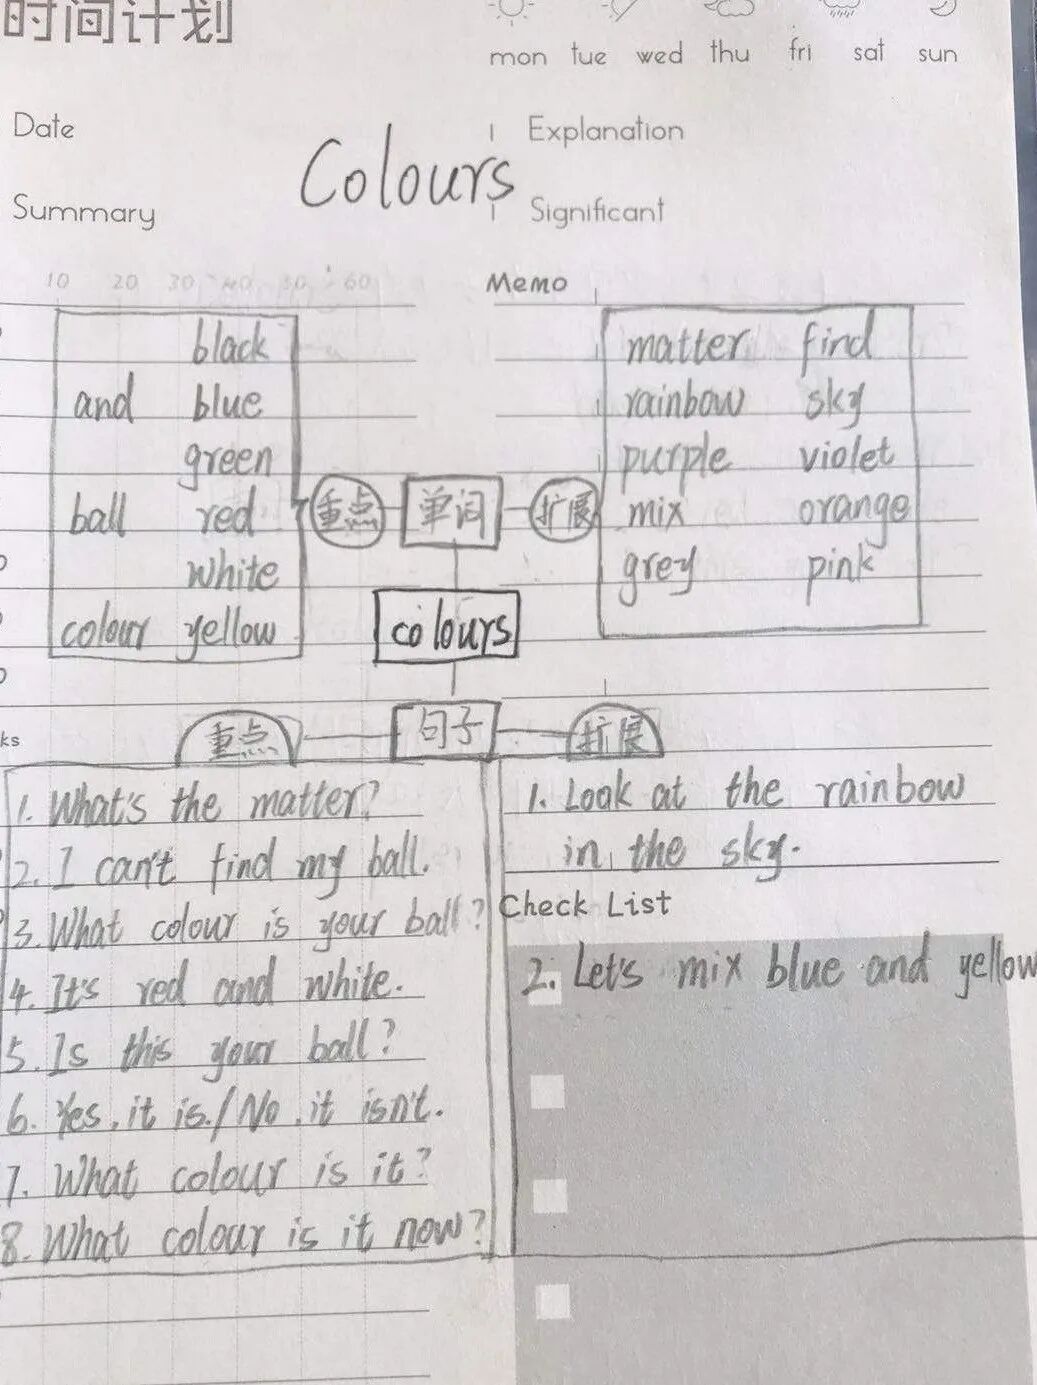 时间计划
mon tue wed thu fri sat sun
Date
Explanation
Colours
Summary
Significant
10 20 30 40 50 60
Memo
black
and blue
green
ball red
white
colour yellow
重点
单词
扩展
matter find
rainbow sky
purple violet
mix orange
grey pink
colours
重点
句子
扩展
ks
1. What's the matter?
2. I can't find my ball.
3. What colour is your ball?
4. It's red and white.
5. Is this your ball?
6. Yes, it is./No, it isn't.
7. What colour is it?
8. What colour is it now?
1. Look at the rainbow
in the sky.
Check List
2. Let's mix blue and yellow